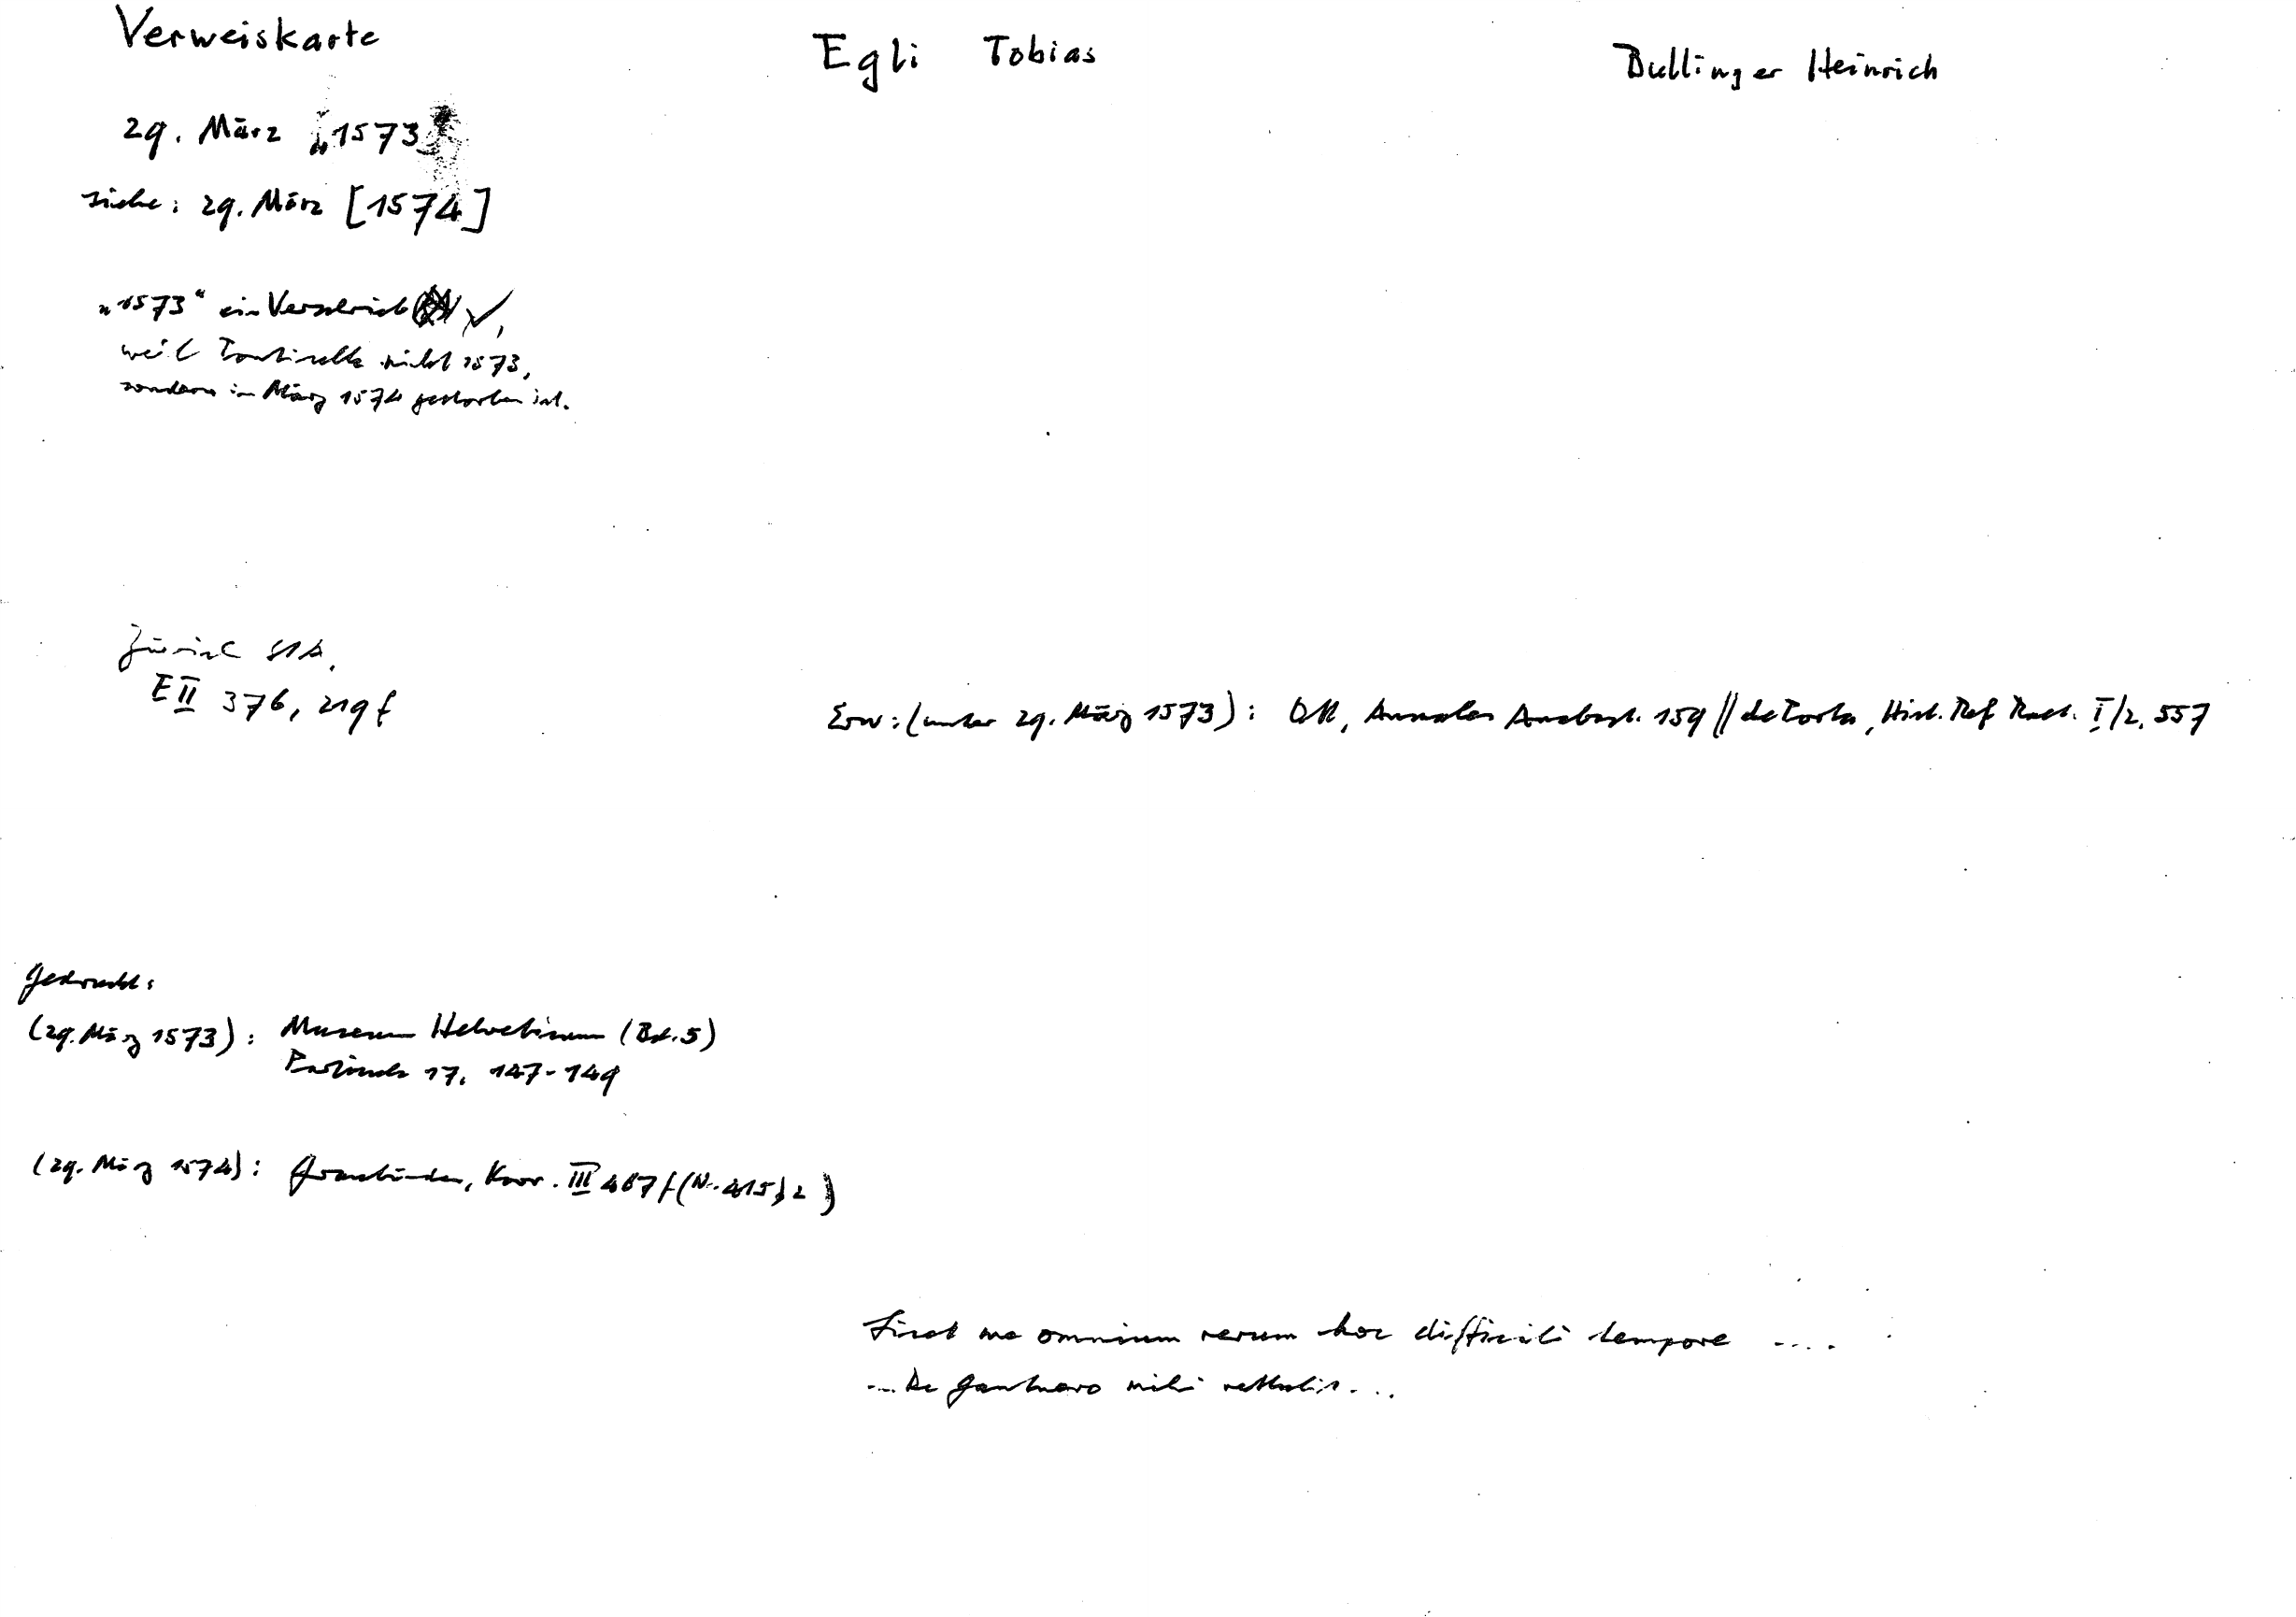 Verweiskarte
Egli Tobias
Bullinger Heinrich
29. März „1573“
siehe: 29. März [1574]
„1573“ ein Verschrieb,
weil Pontisella nicht 1573,
sondern im März 1574 gestorben ist.
Zürich StA,
E II 376, 219f
Erw: (unter 29. März 1573): Ott, Annales Anabapt. 159 // de Porta, Hist. Ref Raet. I/2, 557
Gedruckt:
(29. März 1573): Museum Helveticum (Bd. 5)
Particula 17, 147-149
(29. März 1574): Graubünden, Korr. III 467f (Nr. 415,2)
Facit me omnium rerum hoc difficili tempore ....
... De Gantnero mihi rettulit ...